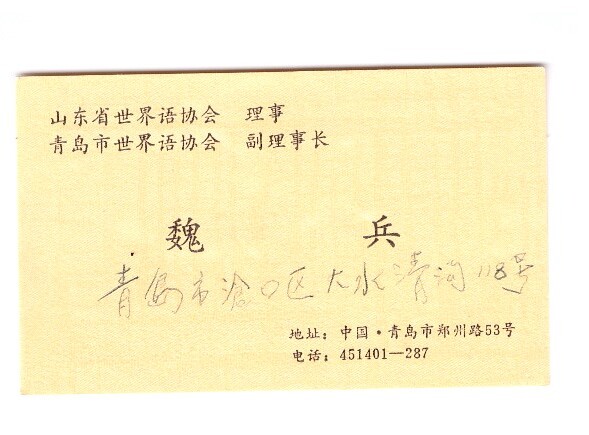 山东省世界语协会 理事
青岛市世界语协会 副理事长
魏 兵
青岛市沧口区大水清沟118号
地址：中国·青岛市郑州路53号
电话：451401—287